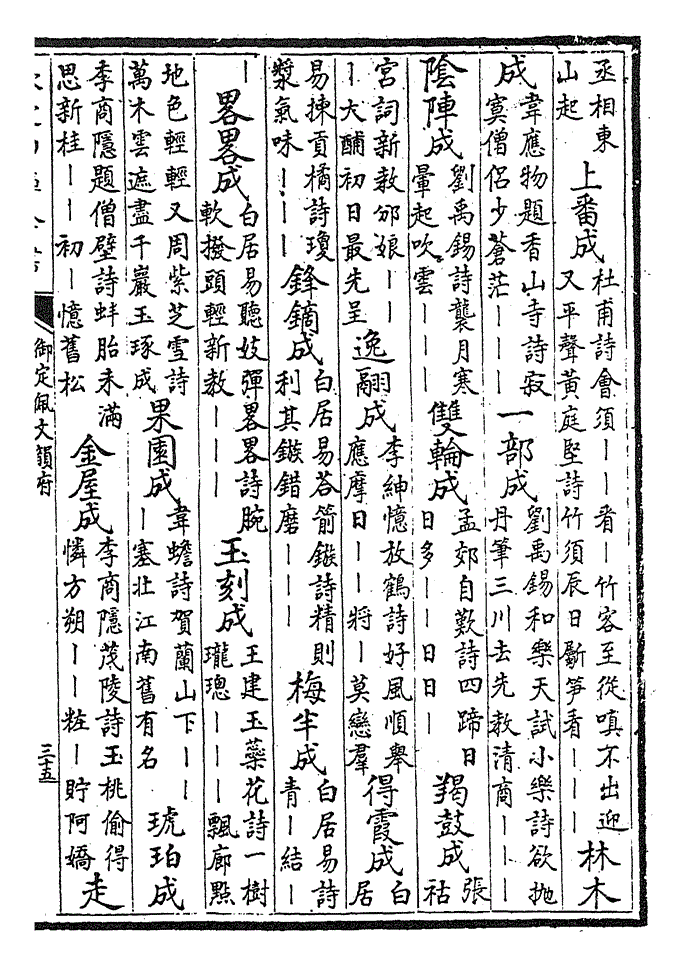 丞相東山起 上番成 杜甫詩會須丨丨看丨竹客至從嗔不出迎又平聲黃庭堅詩竹須辰日斸笋看丨丨丨 林木
成 韋應物題香山寺詩寂寞僧侶少蒼茫丨丨丨 一部成 劉禹錫和樂天試小樂詩欲拋丹筆三川去先教清商丨丨丨
陰陣成 劉禹錫詩襲月寒暈起吹雲丨丨丨 雙輪成 孟郊自歎詩四蹄日日多丨丨日日丨 羯鼓成 張祜
宮詞新教邠娘丨丨丨大酺初日最先呈 逸翮成 李紳憶放鶴詩好風順舉應摩日丨丨將丨莫戀羣 得霞成 白居
易揀貢橘詩瓊漿氣味丨丨丨 鋒鏑成 白居易荅箭鏃詩精則利其鏃錯磨丨丨丨 梅半成 白居易詩青丨丨結丨
丨 畧畧成 白居易聽妓彈畧畧詩腕軟撥頭輕新教丨丨丨 玉刻成 王建玉蘂花詩一樹瓏璁丨丨丨飄廊點
地色輕輕又周紫芝雪詩萬木雲遮盡千巖玉琢成 果園成 韋蟾詩賀蘭山下丨丨丨塞北江南舊有名 琥珀成
李商隱題僧壁詩蚌胎未滿思新桂丨丨初丨憶舊松 金屋成 李商隱茂陵詩玉桃偷得憐方朔丨丨粧丨貯阿嬌 走
御定佩文韻府
三十五